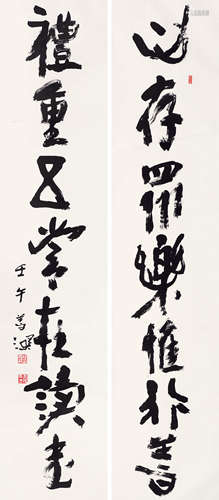 心存樂惟行善
禮重五常在讀書
壬午